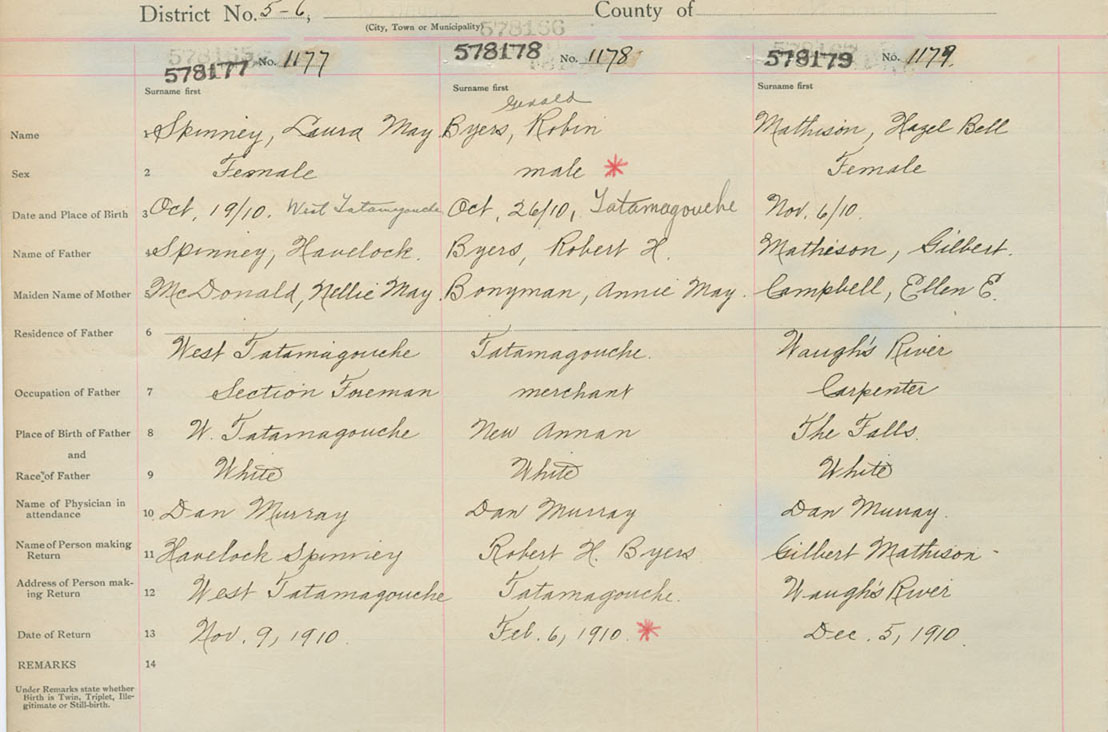 District No. 5-6, County of
(City, Town or Municipality)
578177 No. 1177 578178 No. 1178 578179 No. 1179.
Surname first Surname first Surname first
Gerald
Name 1 Spinney, Laura May Byers, Robin Mathison, Hazel Bell
Sex 2 Female male * Female
Date and Place of Birth 3 Oct, 19/10. West Tatamagouche Oct, 26/10, Tatamagouche Nov. 6/10.
Name of Father 4 Spinney, Havelock. Byers, Robert H. Mathison, Gilbert.
Maiden Name of Mother 5 McDonald, Nellie May. Bonyman, Annie May. Campbell, Ellen E.
Residence of Father 6
West Tatamagouche Tatamagouche. Waugh's River
Occupation of Father 7 Section Foreman merchant Carpenter
Place of Birth of Father 8 W. Tatamagouche New Annan The Falls.
and
Race of Father 9 White White White
Name of Physician in
attendance 10 Dan Murray Dan Murray Dan Murray.
Name of Person making
Return 11 Havelock Spinney Robert H. Byers Gilbert Mathison -
Address of Person mak-
ing Return 12 West Tatamagouche Tatamagouche. Waugh's River
Date of Return 13 Nov. 9, 1910. Feb. 6, 1910. * Dec. 5, 1910
REMARKS 14
Under Remarks state whether
Birth is Twin, Triplet, Ille-
gitimate or Still-birth.